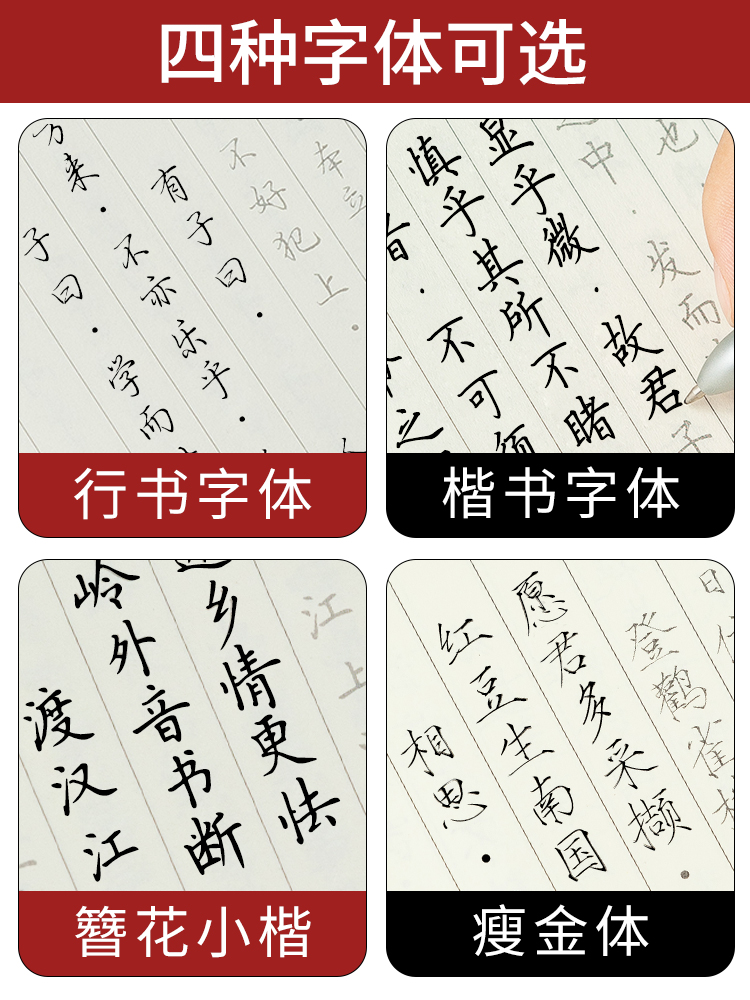 四种字体可选
本立
不好犯上。
有子曰·
不亦乐乎·
方来·
学而
子曰·
行书字体
也
发而
中
子
显乎微·故君
慎乎其所不睹
不可须
之
楷书字体
江上
乡情更怯
岭外音书断
渡汉江
簪花小楷
日
登鹳雀
愿君多采撷
红豆生南国
相思·
瘦金体